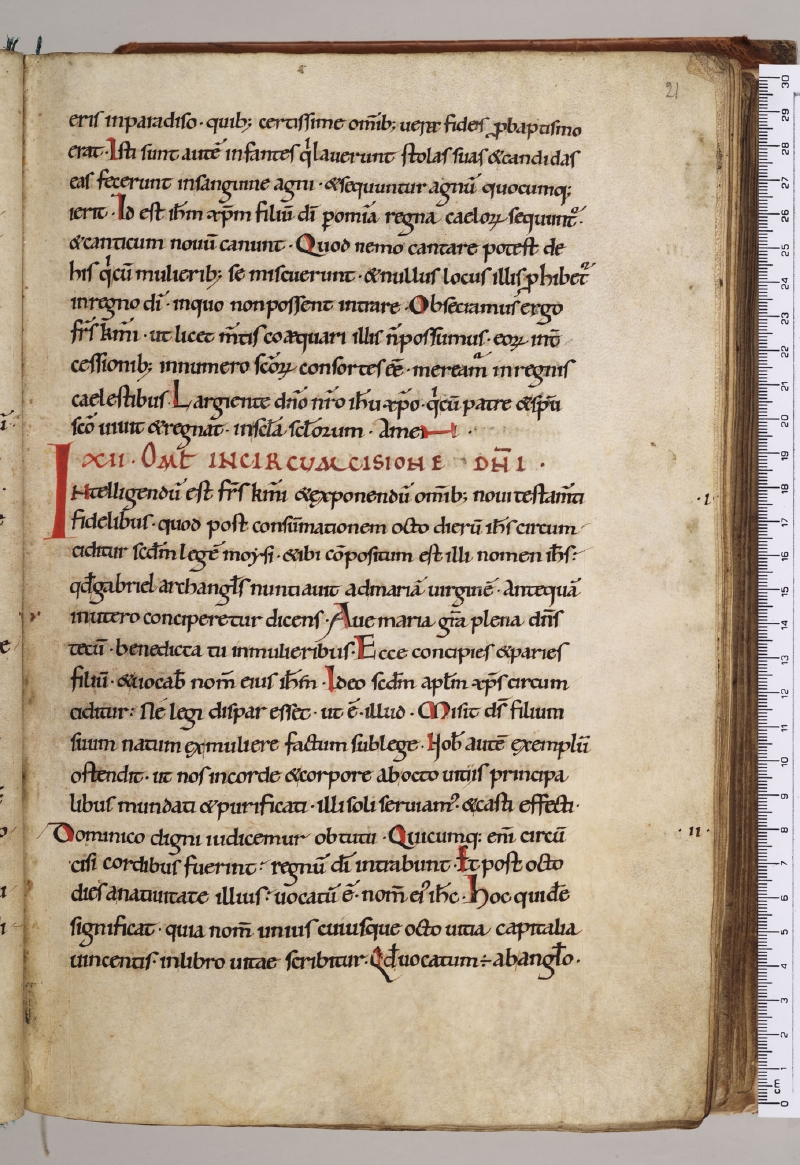 21
eris inparadiso · quib; certissime om̄ib; uerę fidei ꝓbaptismo
erat · Isti sunt autē infantes qͥ lauerunt stolas suas & candidas
eas fecerunt insanguine agni · & sequuntur agnū quocumq;
ierit · Id est ihm̄ xp̄m filiū dī ꝑomīa regna caeloꝝ sequunt᷑ ·
& canticum nouū canunt · Quod nemo cantare potest de
his qͥ cū mulierib; se miscuerunt · & nullus locus illis ꝓhibet᷑
inregno dī · inquo nonpossent intrare · Obsecramus ergo
fr̄s km̄i · ut licet m̄tis coæquari illis n̄ possumus · eoꝝ int̄
cessionib; innumero sc̄oꝝ consortes ēē · mereamᷓ inregnis
caelestibus · Largiente dn̄o nr̄o ihū xp̄o · qͥ cū patre & sp̄u
sc̄o uiuit & regnat · insc̄la sc̄lorum · Amen ·
XII · OML̄ INCIRCUMCISIONE DN̄I ·
Intelligendū est fr̄s km̄i & exponendū om̄ib; noui testam̄ti ·I·
fidelibus · quod post consūmationem octo dierū ihs̄ circum
ciditur scdm̄ legē moysi · & ibi cōpositum est illi nomen ihs̄ :
qd̄ gabriel archangl̄s nuntiauit admariā uirginē · Antequā
inutero conciperetur dicens · Aue maria gr̄a plena dn̄s
tecū · benedicta tu inmulieribus · Ecce concipies & paries
filiū · & uocab̄ nom̄ eius ihm̄ · Ideo scdm̄ apl̄m xp̄s circum
ciditur : Ne legi dispar esset · ut ē · illud · Misit ds̄ filium
suum natum exmuliere factum sublege · Nob̄ autē exemplū
ostendit · ut nos incorde & corpore ab octo uitiis principa
libus mundati & purificati · illi soli seruiam᷒ · & casti effecti ·
Dominico digni iudicemur obtutu · Quicumq; em̄ circū ·II·
cisi cordibus fuerint : regnū dī intrabunt · Et post octo
dies anatiuitate illius : uocatū ē · nom̄ ei᷒ ihc̄ · Hoc quidē
significat · quia nom̄ unius cuiusque octo uitia capitalia
uincentis · inlibro uitae scribitur · Qd̄ uocatum ÷ ab angl̄o ·